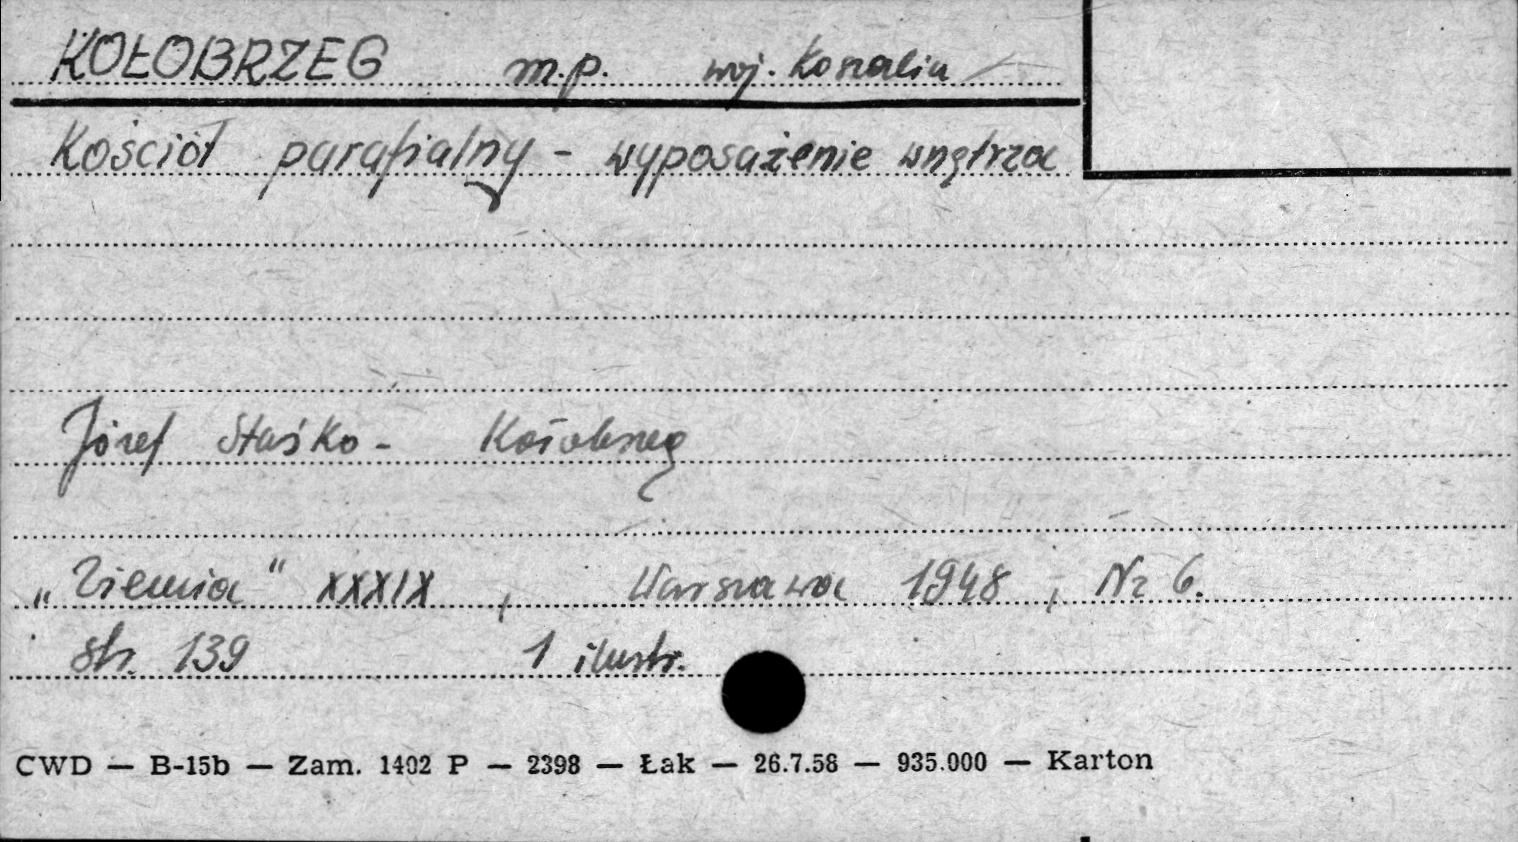 KOŁOBRZEG m.p. woj. Koszalin
Kościół parafialny - wyposażenie wnętrza
Józef Staśko - Kołobrzeg
„Ziemia" XXXIX, Warszawa 1948, Nr 6.
str. 139 1 ilustr.
CWD — B-15b — Zam. 1402 P — 2398 — Łak — 26.7.58 — 935.000 — Karton